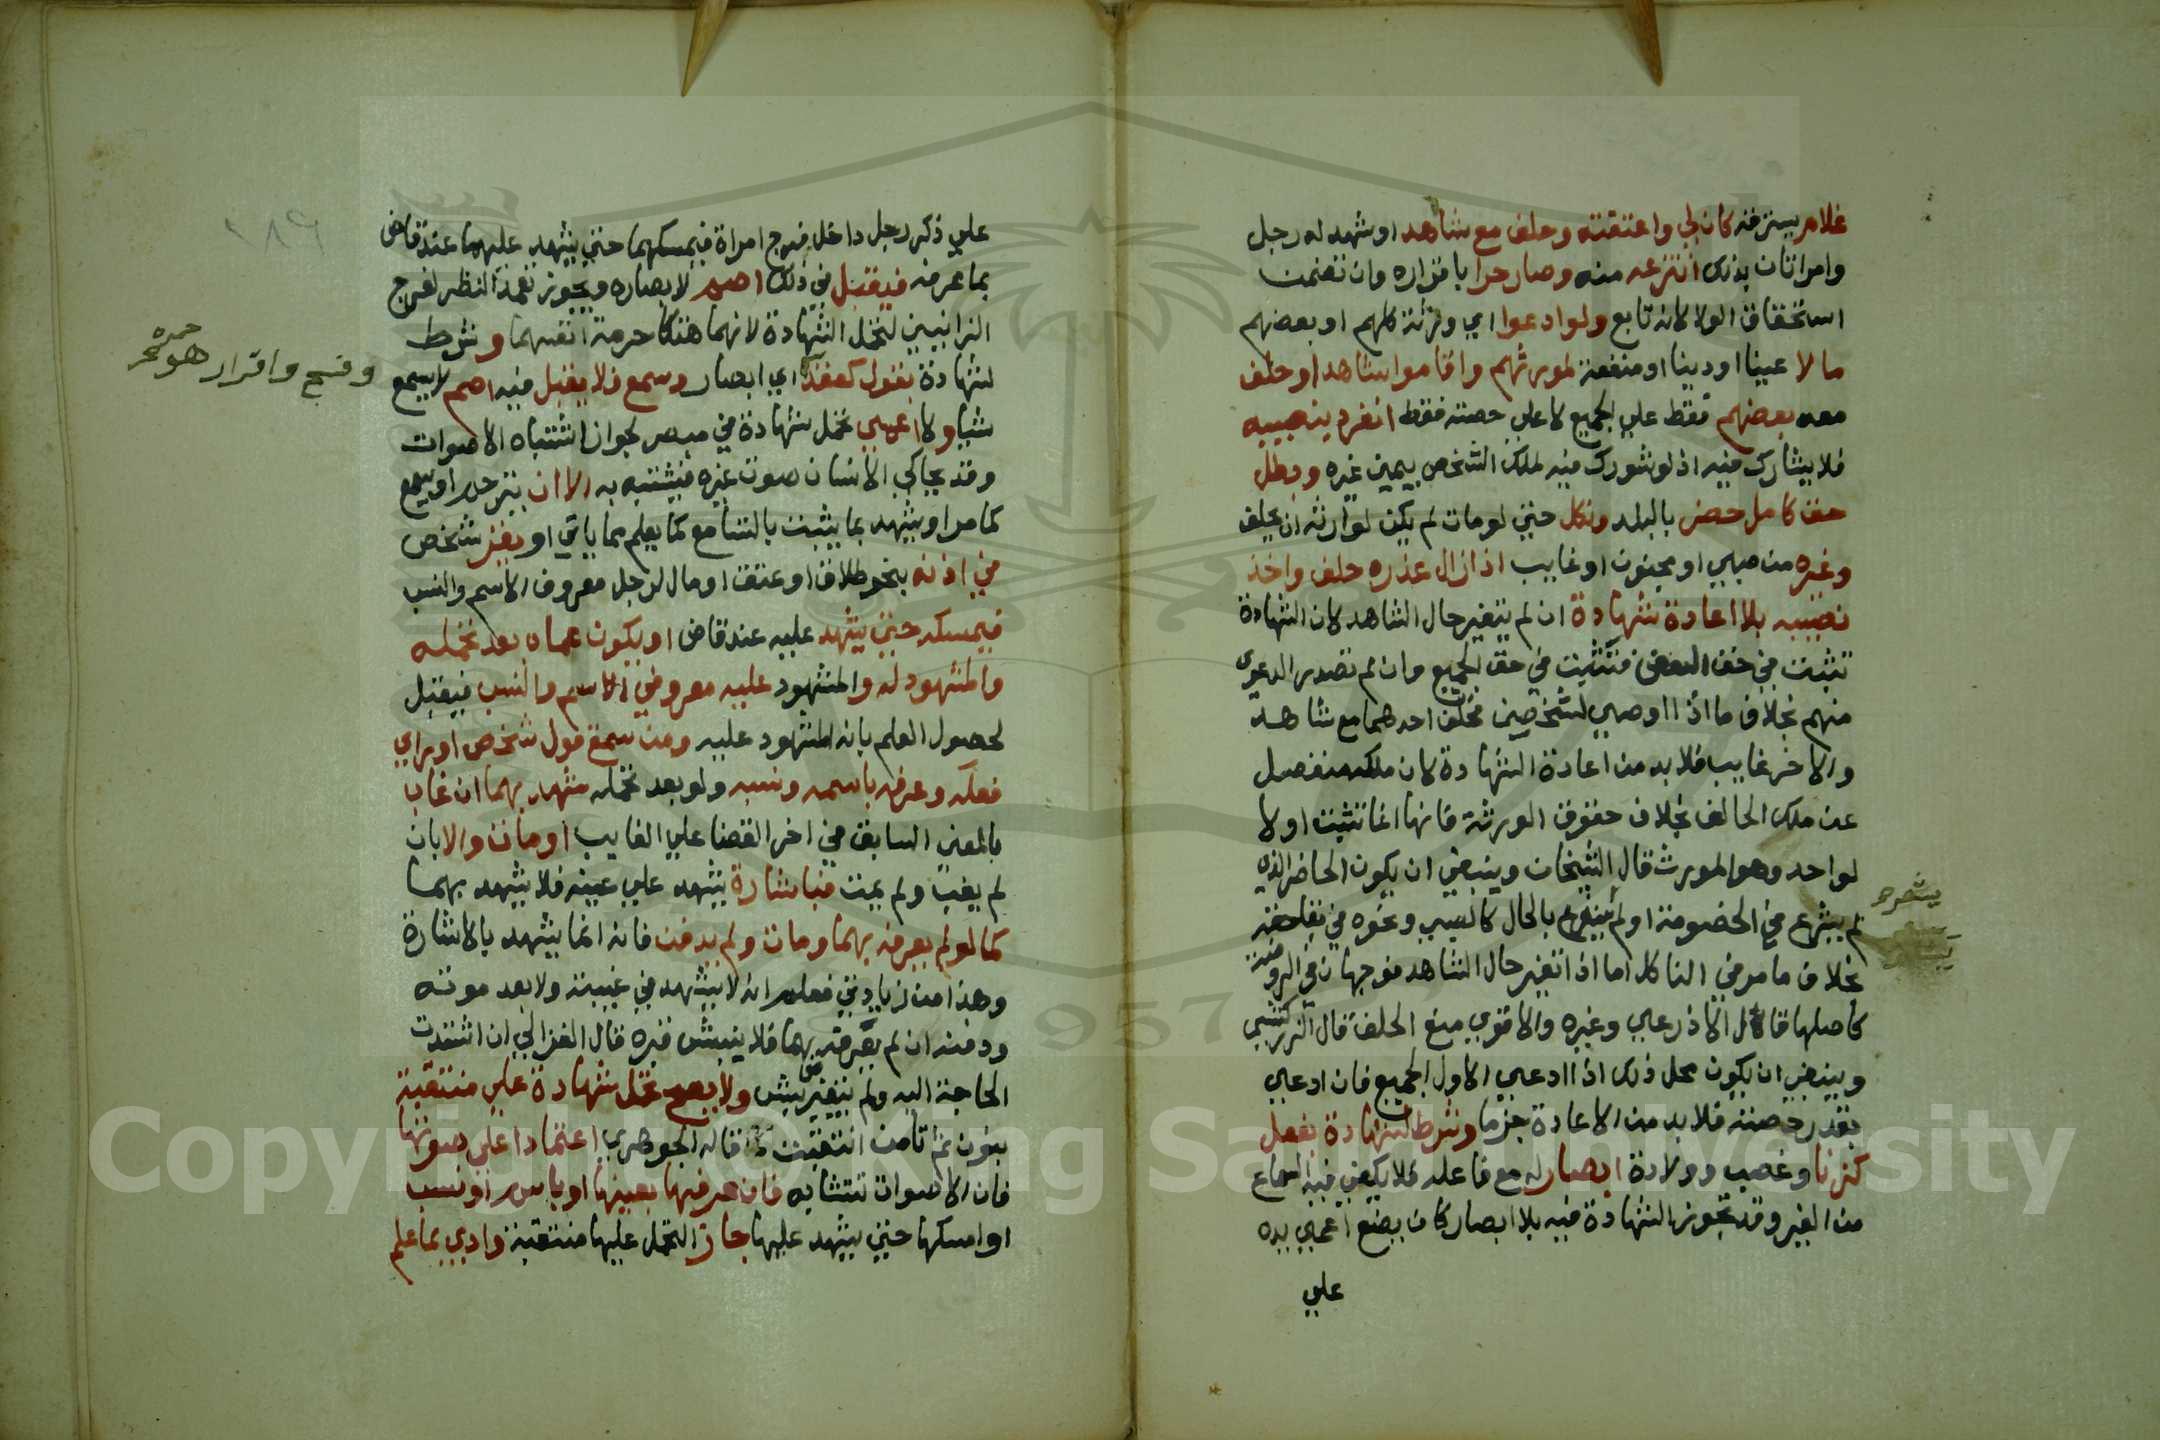 غلام يسترقه كان لي واعتقته وحلف مع شاهد او شهد له رجل
وامراتان بذلك انتزعه منه وصار حرا باقراره وان تضمنت
استحقاق الولا لانه تابع ولو ادعوا اي ورثة كلهم او بعضهم
مالا عينا او دينا او منفعة لمورثهم واقاموا شاهدا وحلف
معه بعضهم فقط علي الجميع لا علي حصته فقط انفرد بنصيبه
فلا يشارك فيه اذ لو شورك فيه لملك الشخص بيمين غيره وبطل
حق كامل حضر بالبلد ونكل حتي لو مات لم يكن لوارثه ان يحلف
وغيره من صبي او مجنون او غايب اذا زال عذره حلف واخذ
نصيبه بلا اعادة شهادة ان لم يتغير حال الشاهد لان الشهادة
تثبت في حق البعض فتثبت في حق الجميع وان لم تصدر الدعوي
منهم بخلاف ما اذا اوصي لشخصين فحلف احدهما مع شاهد
والاخر غايب فلا بد من اعادة الشهادة لان ملكه منفصل
عن ملك الحالف بخلاف حقوق الورثة فانها انما تثبت اولا
لواحد وهو المورث قال الشيخان وينبغي ان يكون الحاضر الذي
لم يشرع في الخصومة او لم يشعر بالحال كالصبي ونحوه في بقا حقه
بخلاف ما مر في الناكل اما اذا تغير حال الشاهد فوجهان في الروضة
كاصلها قال الاذرعي وغيره والاقوي منع الحلف قال الزركشي
وينبغي ان يكون محل ذلك اذا ادعي الاول الجميع فان ادعي
بقدر حصته فلا بد من الاعادة جزما وشرط لشهادة بفعل
كزنا وغصب وولادة ابصار له مع فاعله فلا يكفي فيه السماع
من الغير وقد تجوز الشهادة فيه بلا ابصار كان يضع اعمي يده
علي
يشعر
علي ذكر رجل داخل فرج امراة فيمسكهما حتي يشهد عليهما عند قاض
بما عرفه فيقبل في ذلك اصم لابصاره ويجوز تعمد النظر لفرج
الزانيين لتحمل الشهادة لانهما هتكا حرمة انفسهما وشرط
لشهادة بقول كعقد اي ابصار وسمع فلا يقبل فيه اصم لا يسمع
شيا ولا اعمي تحمل شهادة في مبصر لجواز اشتباه الاصوات
وقد يحاكي الانسان صوت غيره فيشتبه به الا ان يترجم او يسمع
كما مر او يشهد بما يثبت بالتسامع كما يعلم مما ياتي او يقر شخص
في اذنه بنحو طلاق او عتق او مال لرجل معروف الاسم والنسب
فيمسكه حتي يشهد عليه عند قاض او يكون عماه بعد تحمله
والمشهود له والمشهود عليه معروفي الاسم والنسب فيقبل
لحصول العلم بانه المشهود عليه ومن سمع قول شخص او راي
فعله وعرفه باسمه ونسبه ولو بعد تحمله شهد بهما ان غاب
بالمعني السابق في اخر القضا علي الغايب او مات والا بان
لم يغب ولم يمت فباشارة يشهد علي عينه فلا يشهد بهما
كما لو لم يعرفه بهما ومات ولم يدفن فانه انما يشهد بالاشارة
وهذا من زيادتي فعلم انه لا يشهد في غيبته ولا بعد موته
ودفنه ان لم يعرفه بهما فلا ينبش قبره قال الغزالي ان اشتدت
الحاجة اليه ولم يتغير نبش ولا يصح تحمل شهادة علي منتقبة
بنون ثم تا من انتقبت كما قاله الجوهري اعتمادا علي صوتها
فان الاصوات تتشابه فان عرفها بعينها او باسم ونسب
او امسكها حتي يشهد عليها جاز التحمل عليها منتقبة وادي بما علم
وفسخ واقرار هو